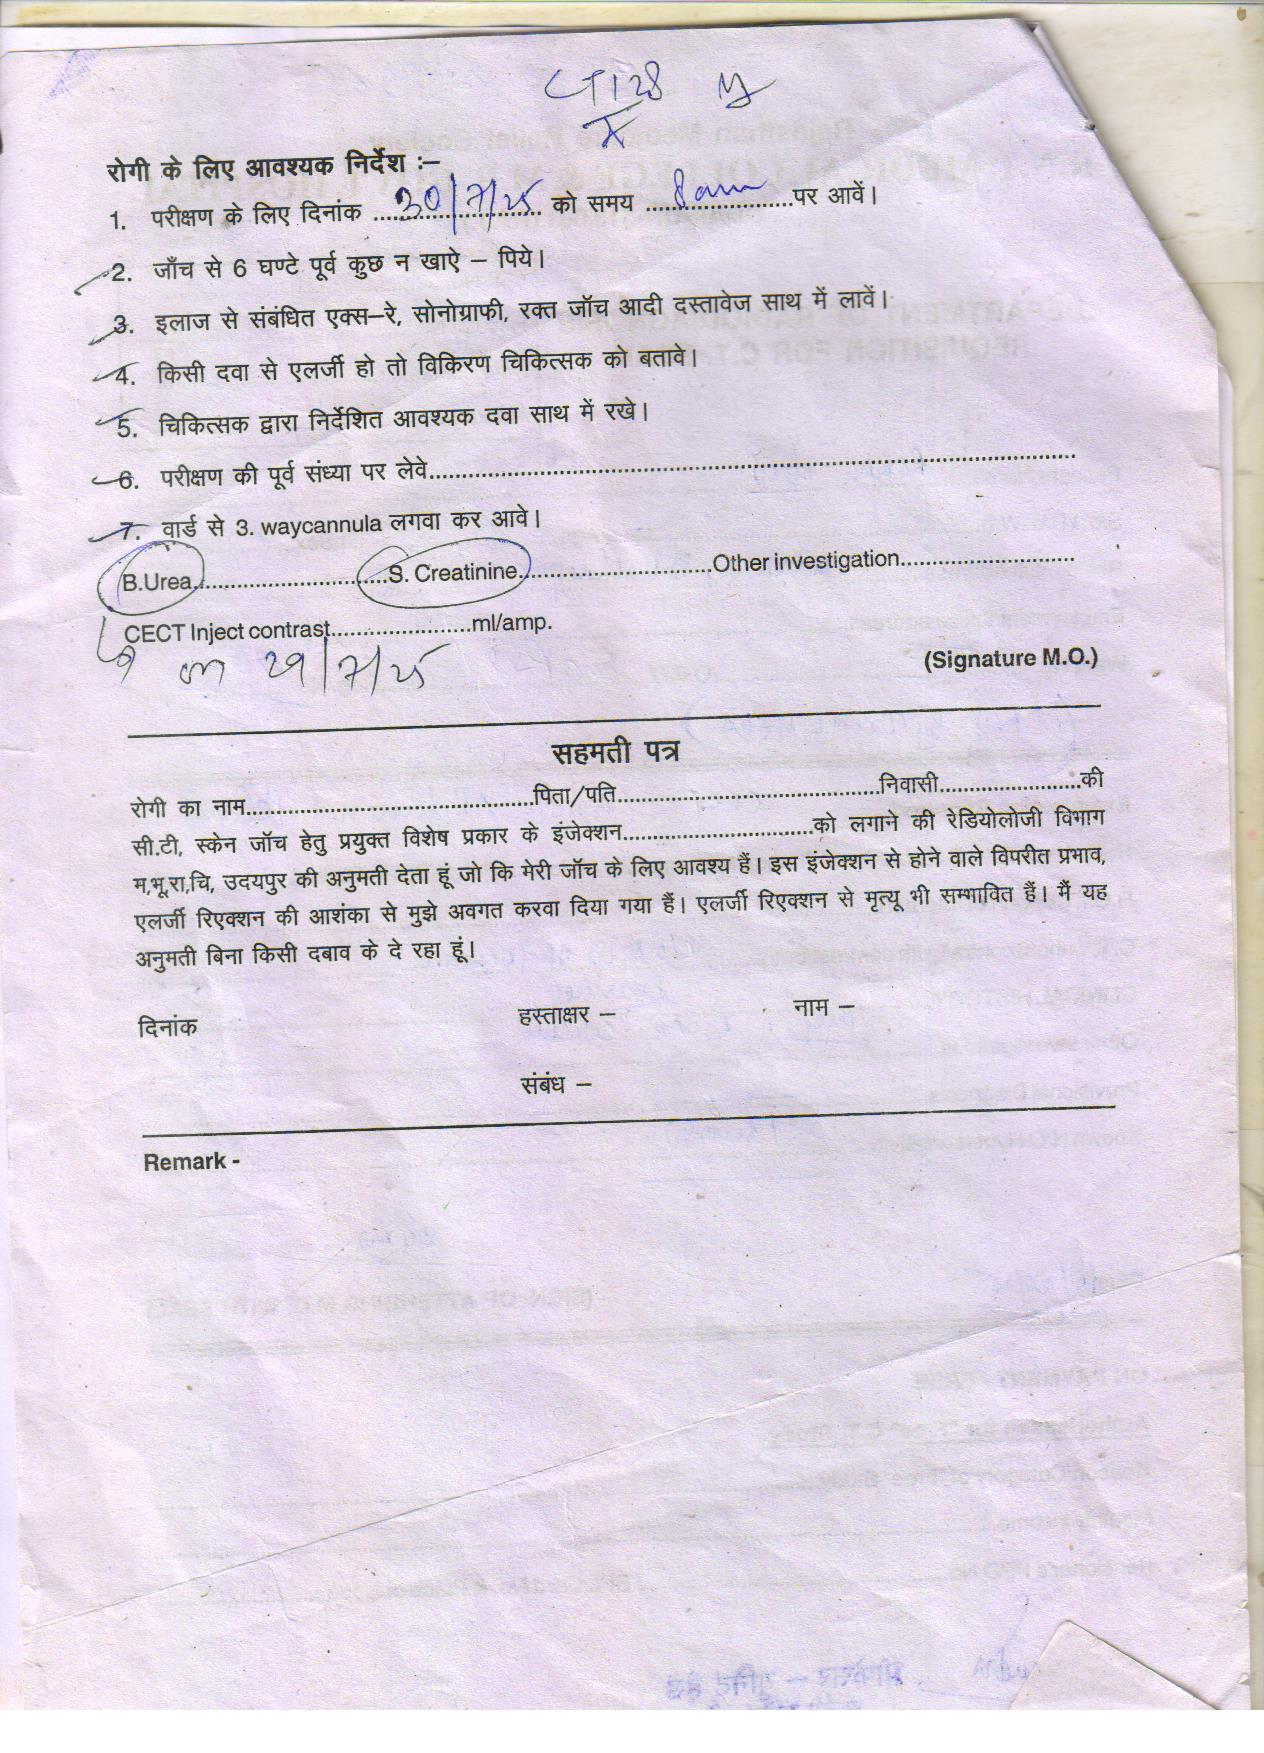 रोगी के लिए आवश्यक निर्देश :–
1. परीक्षण के लिए दिनांक ..30/7/25.. को समय ..8am..पर आवें।
2. जाँच से 6 घण्टे पूर्व कुछ न खाऐ – पिये।
3. इलाज से संबंधित एक्स–रे, सोनोग्राफी, रक्त जॉच आदी दस्तावेज साथ में लावें।
4. किसी दवा से एलर्जी हो तो विकिरण चिकित्सक को बतावे।
5. चिकित्सक द्वारा निर्देशित आवश्यक दवा साथ में रखे।
6. परीक्षण की पूर्व संध्या पर लेवे..............................
7. वार्ड से 3. waycannula लगवा कर आवे।
B.Urea..............................S. Creatinine..............................Other investigation..............................
CECT Inject contrast......................ml/amp.
on 29/7/25
(Signature M.O.)
सहमती पत्र
रोगी का नाम..............................पिता/पति..............................निवासी........................की
सी.टी, स्केन जॉच हेतु प्रयुक्त विशेष प्रकार के इंजेक्शन..............................को लगाने की रेडियोलोजी विभाग
म,भू,रा,चि, उदयपुर की अनुमती देता हूं जो कि मेरी जॉच के लिए आवश्य हैं। इस इंजेक्शन से होने वाले विपरीत प्रभाव,
एलर्जी रिएक्शन की आशंका से मुझे अवगत करवा दिया गया हैं। एलर्जी रिएक्शन से मृत्यू भी सम्भावित हैं। मैं यह
अनुमती बिना किसी दबाव के दे रहा हूं।
दिनांक हस्ताक्षर – नाम –
संबंध –
Remark -